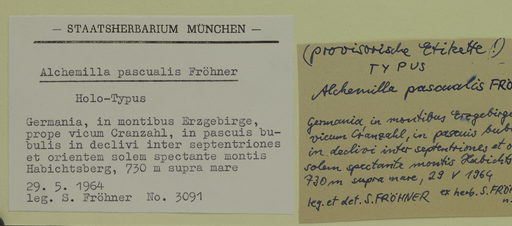 — STAATSHERBARIUM MÜNCHEN —
Alchemilla pascualis Fröhner
Holo-Typus
Germania, in montibus Erzgebirge,
prope vicum Cranzahl, in pascuis bu-
bulis in declivi inter septentriones
et orientem solem spectante montis
Habichtsberg, 730 m supra mare
29. 5. 1964
leg. S. Fröhner No. 3091
(provisorische Etikette!)
TYPUS
Alchemilla pascualis FRÖ
Germania in montibus Erzgebirge
vicum Cranzahl, in pascuis bub
in declivi inter septentriones et o
solem spectante montis Habichts
730 m supra mare, 29 V 1964
leg. et det. S. FRÖHNER ex herb. S. FRÖH